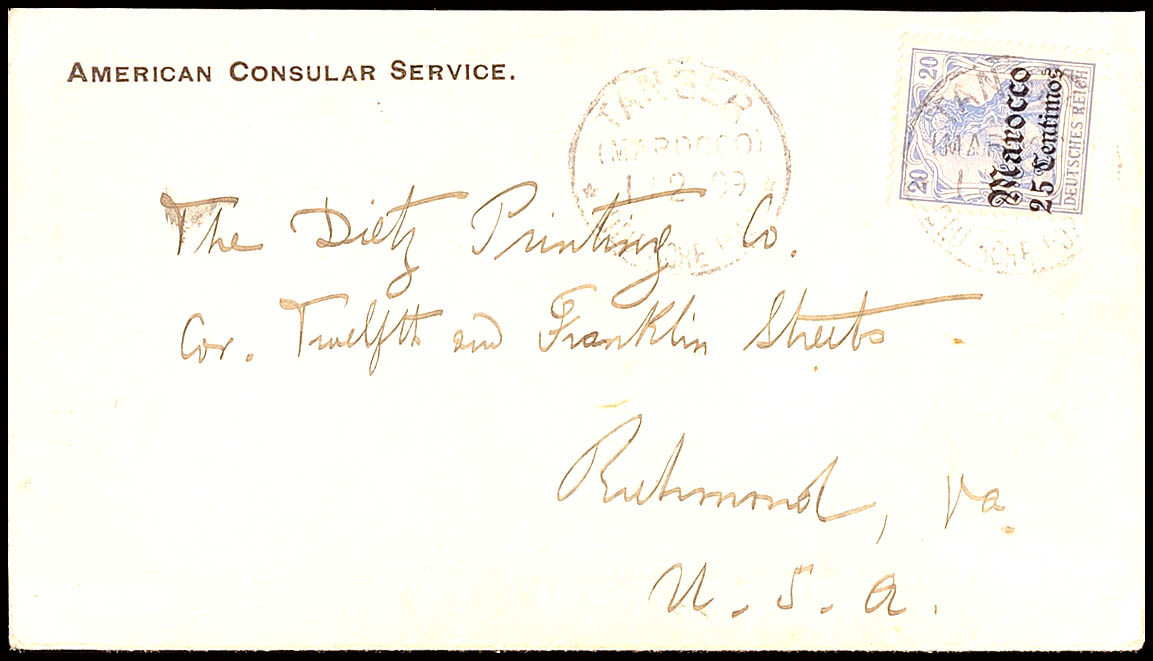 AMERICAN CONSULAR SERVICE.
TANGER
(MAROCCO)
20
20
Marocco
25 Centimos
DEUTSCHES REICH
The Dietz Printing Co.
Cor. Twelfth and Franklin Streets.
Richmond, Va.
U.S.A.